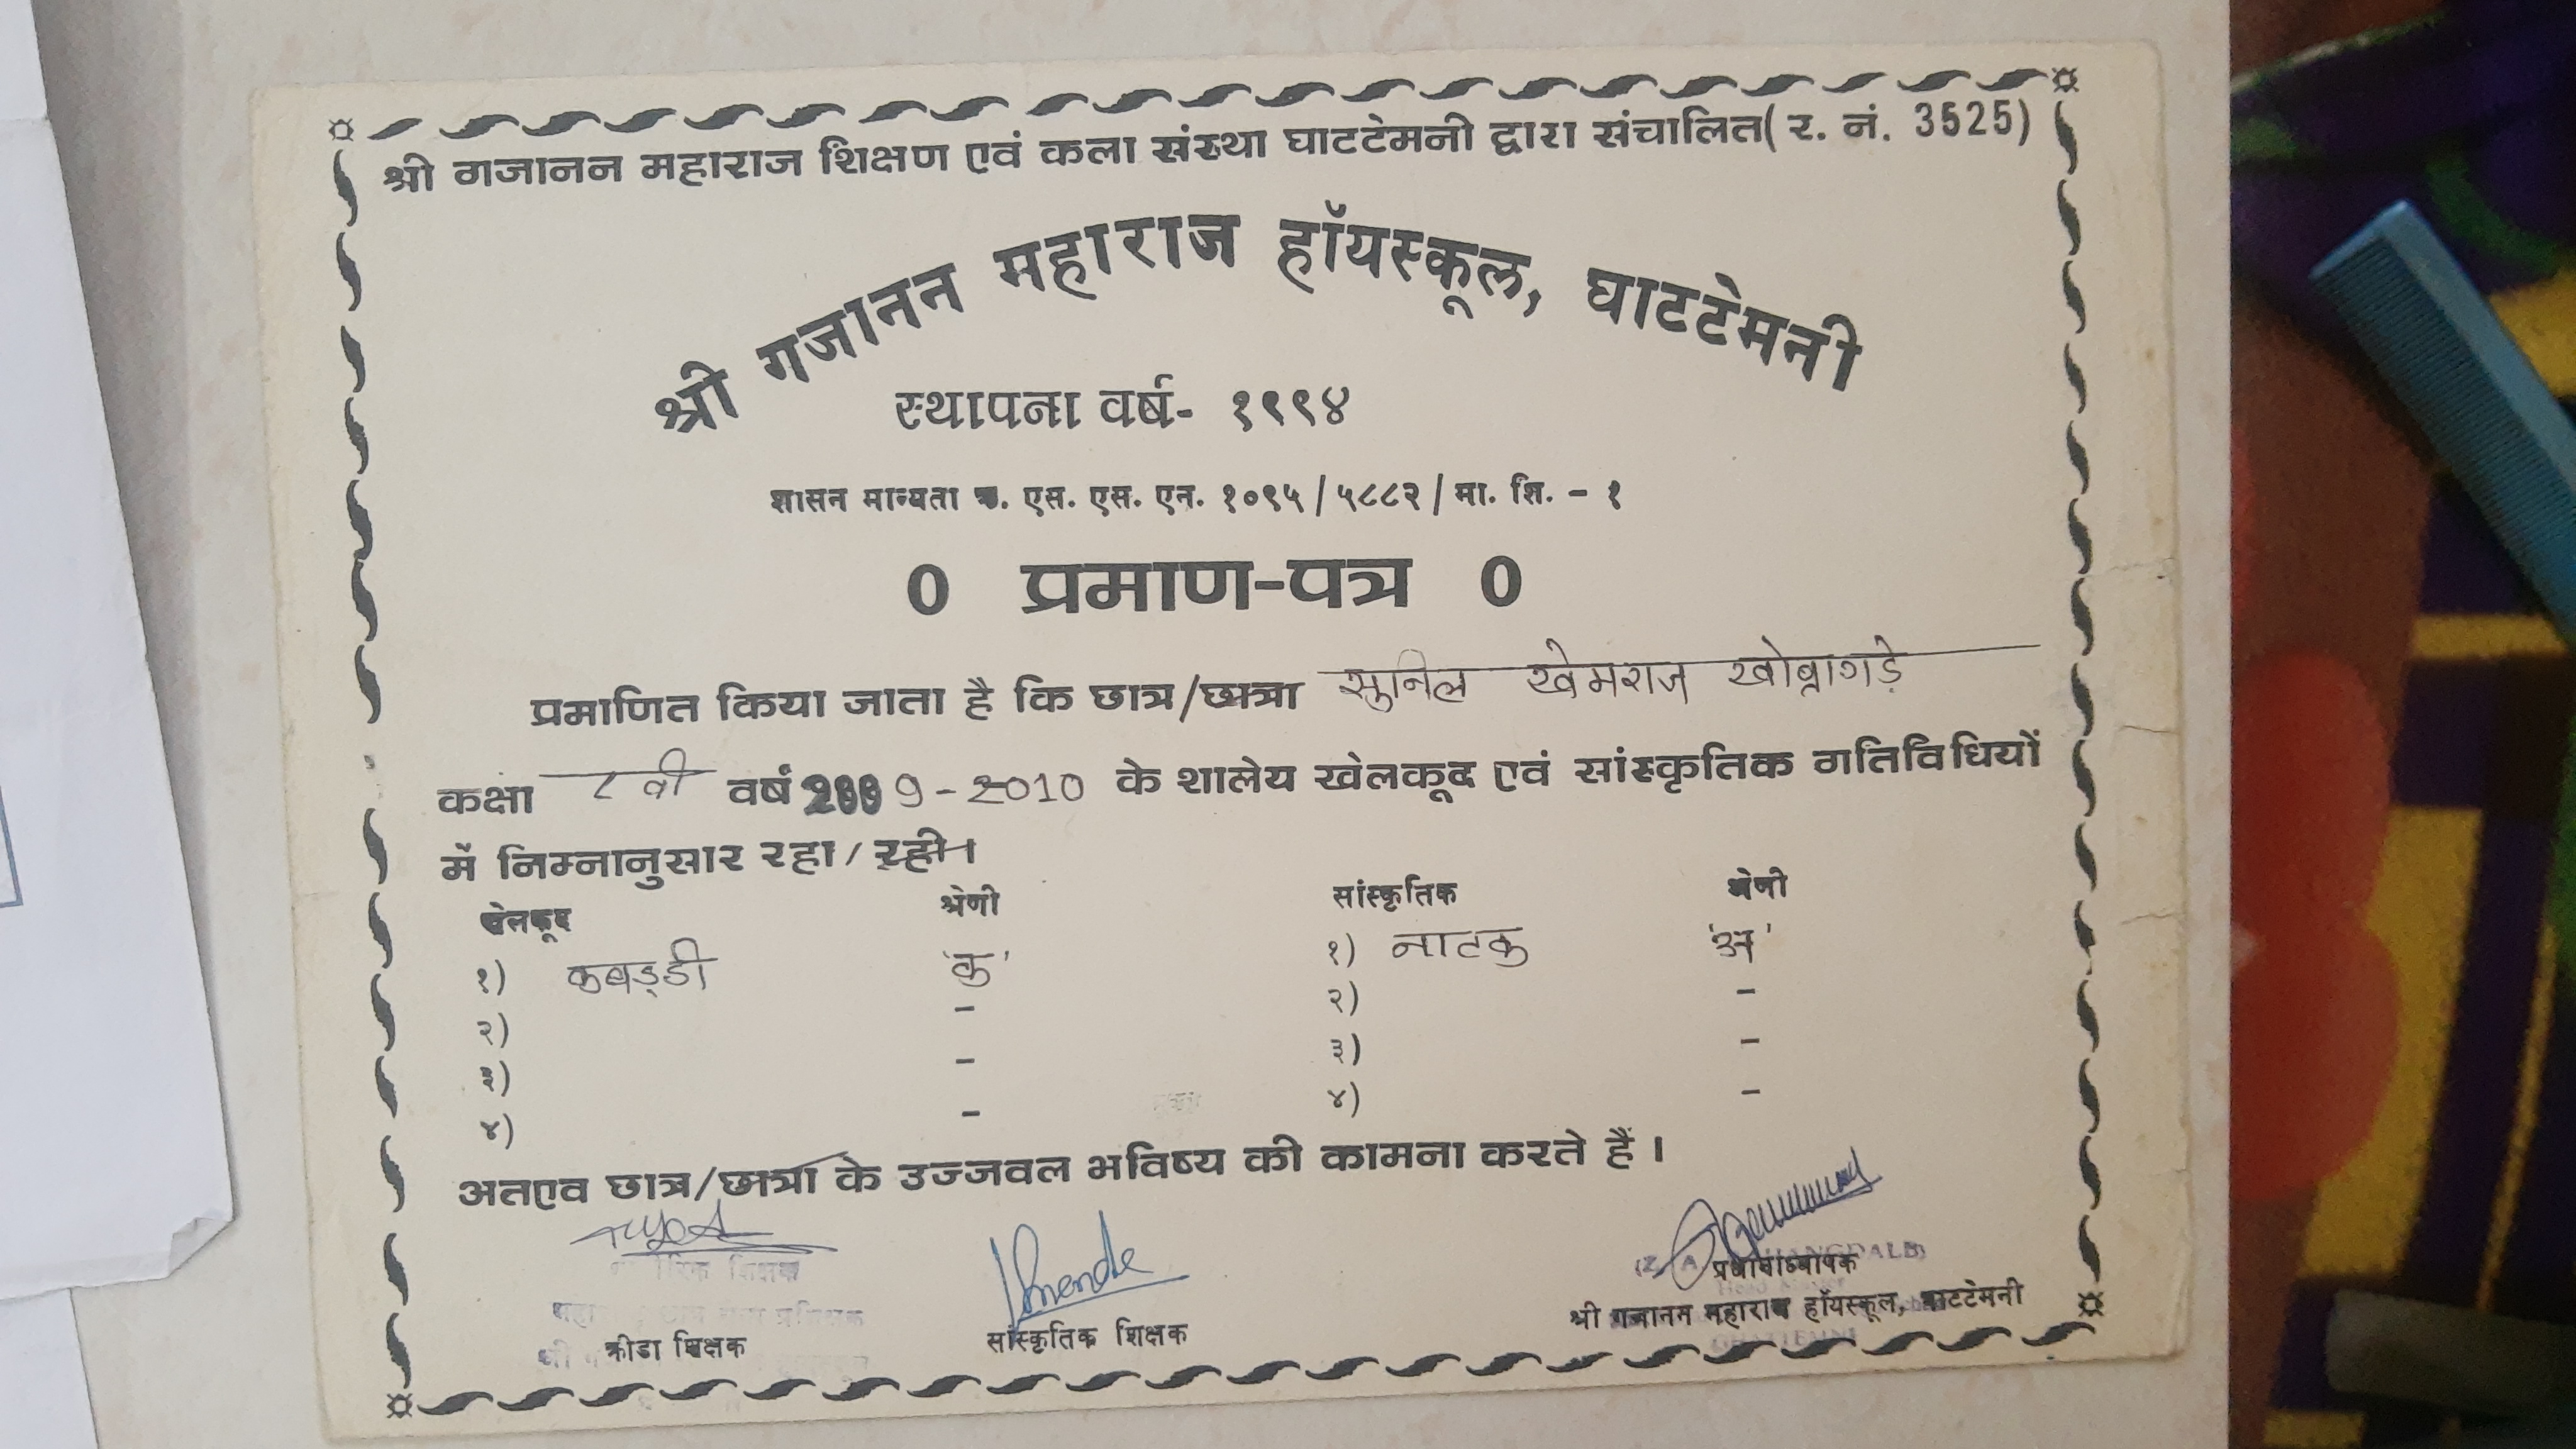 श्री गजानन महाराज शिक्षण एवं कला संस्था घाटटेमनी द्वारा संचालित( र. नं. 3525)
श्री गजानन महाराज हॉयस्कूल, घाटटेमनी
स्थापना वर्ष- १९९४
शासन मान्यता क्र. एस. एस. एन. १०९५/५८८२/मा. शि. - १
0 प्रमाण-पत्र 0
प्रमाणित किया जाता है कि छात्र/छात्रा सुनिल खेमराज खोब्रागडे
कक्षा ८ वी वर्ष 2009-2010 के शालेय खेलकूद एवं सांस्कृतिक गतिविधियों
में निम्नानुसार रहा/रही।
खेलकूद श्रेणी सांस्कृतिक श्रेणी
१) कबड्डी 'क' १) नाटक 'अ'
२) - २) -
३) - ३) -
४) - ४) -
अतएव छात्र/छात्रा के उज्जवल भविष्य की कामना करते हैं।
प्रधानाध्यापक
क्रीडा शिक्षक सांस्कृतिक शिक्षक श्री गजानन महाराज हॉयस्कूल, घाटटेमनी